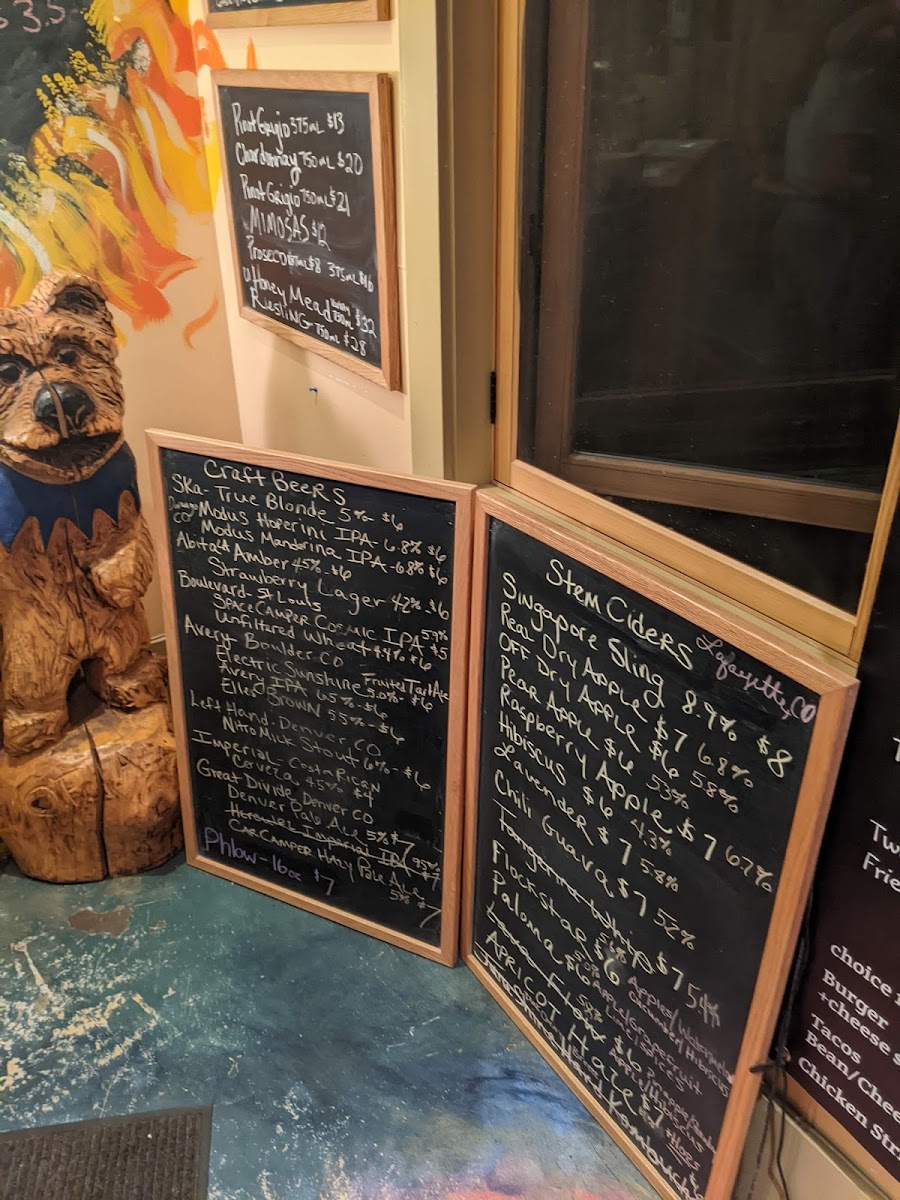 3.5
Pinot Grigio 375mL $13
Chardonnay 750mL $20
Pinot Grigio 750mL $21
MIMOSAS $12
Prosecco 187mL $8 375mL $16
Honey Mead 750mL $32
RIESLING 750mL $28
Craft BEERS
SKa- True Blonde 5% $6
Durango CO Modus Hoperini IPA- 6.8% $6
Modus Mandarina IPA-6.8% $6
Abita LA Amber 4.5% $6
Strawberry Lager 4.2% $6
Boulevard- St Louis
SPACE CAMPER COSMIC IPA 5.9% $5
Unfiltered Wheat 4.4% $6
Avery Boulder CO
Electric Sunshine Fruited Tart Ale 5.0% $6
Avery IPA 6.5% -$6
Ellie's BROWN 5.5% - $6
Left Hand- Denver, CO
Nitro Milk Stout 6% - $6
Imperial - Costa Rican
Cerveza 4.5% $4
Great Divide, Denver CO
Denver Pale Ale 5% $7
Hercules Imperial IPA 9.5% $7
CAR CAMPER HAZY Pale Ale 5% $7
Phlow-16oz $7
Stem CiDERS Lafayette, CO
Singapore Sling 8.9% $8
Real Dry Apple $7 6.8%
OFF Dry Apple $6 5.8%
Pear Apple $6 5.3%
Raspberry Apple $7 6.7%
Hibiscus $6 4.3%
Lavender $7 5.8%
Chili Guava $7 5.2%
$7 5.4%
Flockstar $6 Apples/Watermelon Cucumber/Hibiscus
Paloma $6 Apple/Grapefruit
APRICOT Haze $7
Hard Kombucha
Tw
Frie
choice
Burger
+cheese
Tacos
Bean/Chee
Chicken Stri